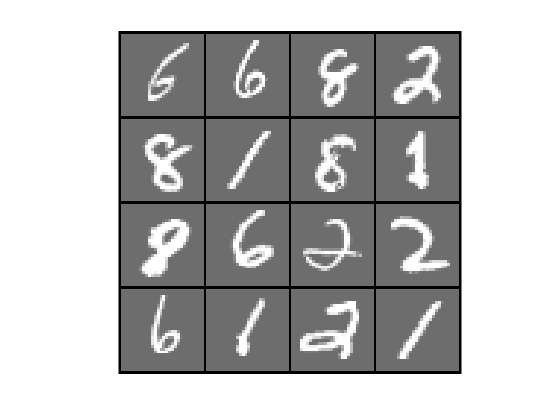 6 6 8 2
8 1 8 1
8 6 2 2
6 1 2 1